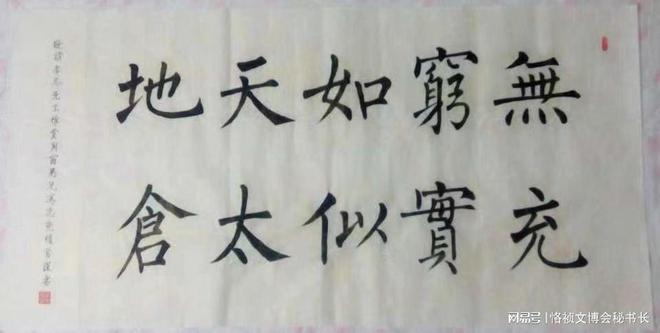 無窮如天地
充實似太倉
网易号 | 恪祯文博会秘书长